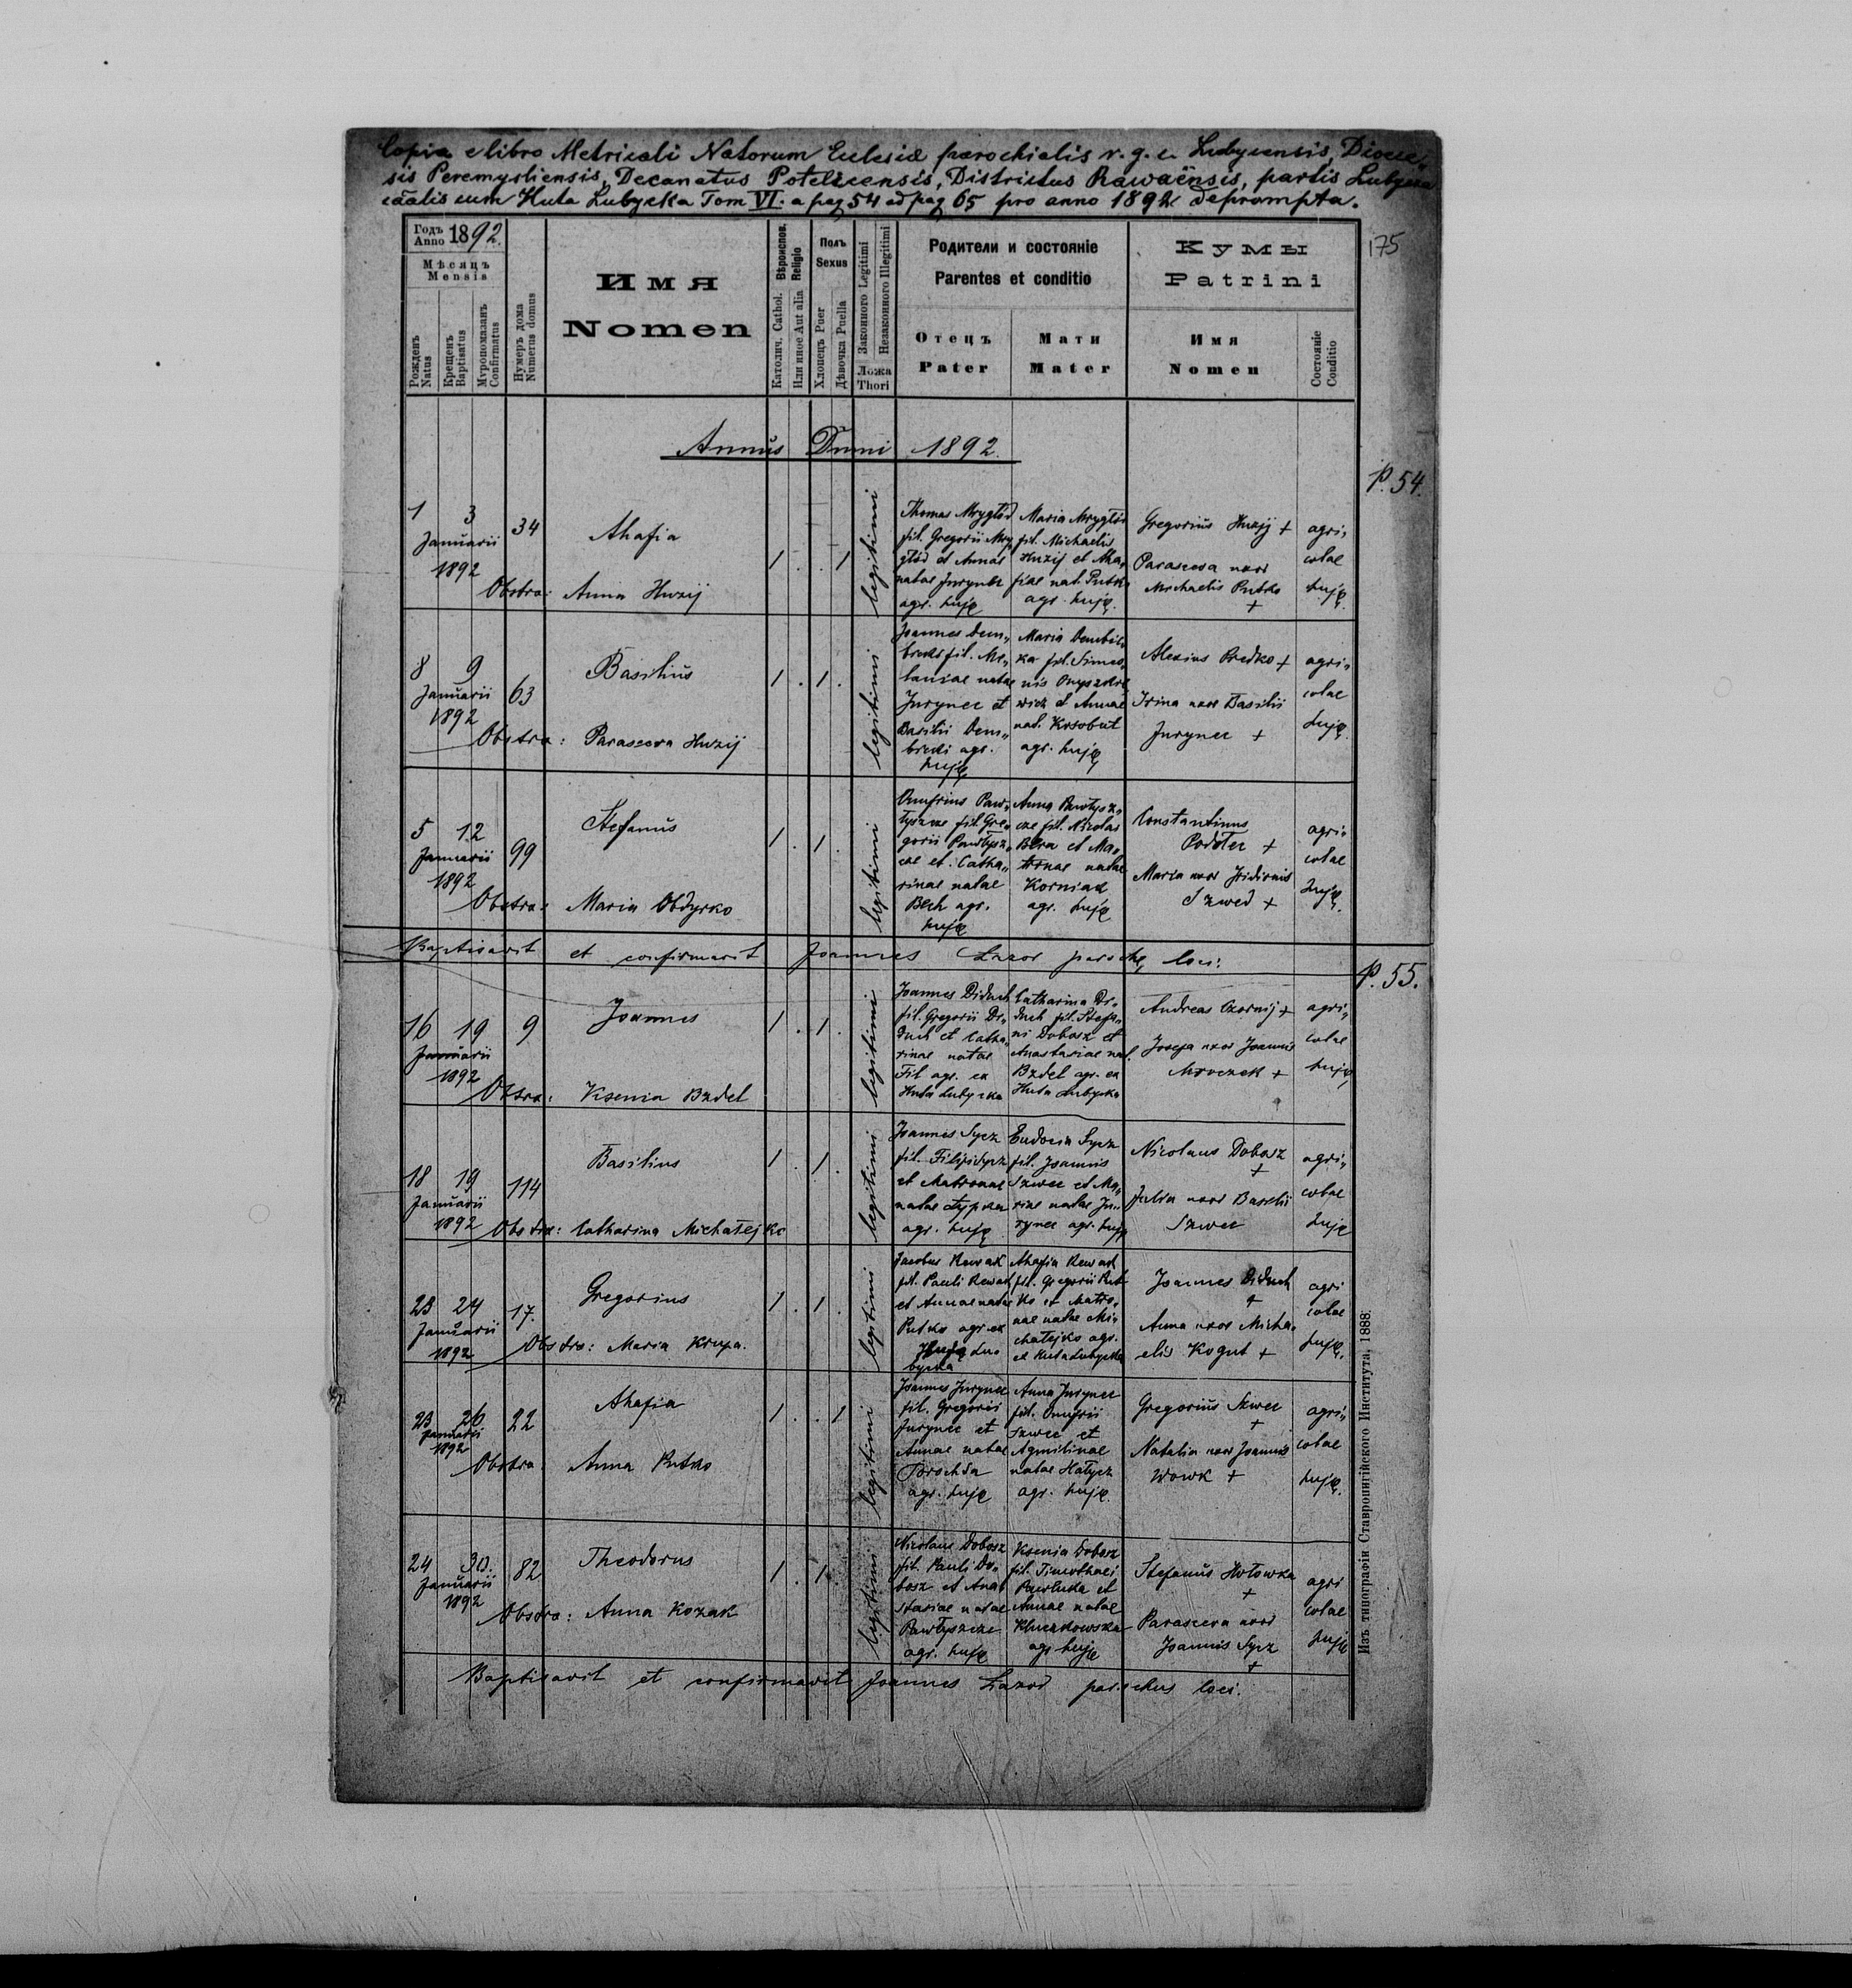 Copia e libro Metricali Natorum Eclesiæ parochialis r. g. c. Lubycensis, Dioce„
sis Peremysliensis, Decanatus Potelicensis, Districtus Rawaënsis, partis Lubycza
cum Huta Lubycka Tom VI. a pag 54 ad pag 65 pro anno 1892 deprompta.
175
Годъ
Anno 1892.
Мѣсяцъ
Mensis
Рожденъ
Natus
Крещенъ
Baptisatus
Мѵропомазанъ
Confirmatus
Нумеръ дома
Numerus domus
Имя
Nomen
Вѣроиспов.
Religio
Католич. Cathol.
Или иное Aut alia
Полъ
Sexus
Хлопецъ Puer
Дѣвочка Puella
Законного Legitimi
Незаконного Illegitimi
Ложа
Thori
Родители и состоянiе
Parentes et conditio
Отецъ
Pater
Мати
Mater
Кумы
Patrini
Имя
Nomen
Состоянiе
Conditio
Annus Dnni 1892.
P. 54.
1 3
Januarii
1892
34
Ahafia
Obstra: Anna Huzij
1 . . 1
legitimi
Thomas Mrygłód
fil. Gregorii Mry
głód et Annae
natae Jurynec
agr. huję
Maria Mrygłód
fil. Michaelis
Huzij et Aha„
fiae nat. Putko
agr. huję.
Gregorius Huzij +
Parasceva uxor
Michaelis Putko
+
agri„
colae
huję.
8 9
Januarii
1892
63
Basilius
Obstra: Parasceva Huzij
1 . 1 .
legitimi
Joannes Dem„
bicki fil. Me„
laniae natae
Jurynec et
Basilii Dem„
bicki agr.
huję
Maria Dembic„
ka fil. Simeo„
nis Onyszkie
wicz et Annae
nat. Kosobut
agr. huję
Alexius Predko +
Irina uxor Basilii
Jurynec +
agri„
colae
huję
5 12
Januarii
1892
99
Stefanus
Obstra: Maria Obdyrko
1 . 1 .
legitimi
Onufrius Paw„
łyszcze fil. Gre„
gorii Pawłysz„
cze et Catha„
rinae natae
Bech agr.
huję
Anna Pawłysz„
cze fil. Nicolai
et Ma„
natae
Korniak
agr. huję
Constantinus
+
Maria uxor Isidionis
Szwed +
agri„
colae
huję.
Baptisavit et confirmavit Joannes Lazor paroch, loci.
P. 55.
16 19
Januarii
1892
9
Joannes
Obstra: Ksenia Bzdel
1 . 1 .
legitimi
Joannes Diduch
fil. Gregorii Di„
duch et Catha„
rinae natae
Fil agr. ex
Huta Lubycka
Catharina Di„
duch fil. Stefa„
ni Dobosz et
Anastasiae nat.
Bzdel agr. ex
Huta Lubycka
Andreas Czornij +
Josepa uxor Joannis
Mroczek +
agri„
colae
huję
18 19
Januarii
1892
114
Basilius
Obstra: Catharina Michałejko
1 . 1 .
legitimi
Joannes Sycz
fil. Filipi Sycz
et Matronae
natae
agr. huję
Eudocia Sycz
fil. Joannis
Szwec et Ma„
riae natae Ju„
rynec agr. huję
Nicolaus Dobosz
+
Julia uxor Basilii
Szwec
agri„
colae
huję
23 24
Januarii
1892
17.
Gregorius
Obstra: Maria Krupa.
1 . 1 .
legitimi
Jacobus Kowak
fil. Pauli
et Annae natae
Putko agr ex
Huta Lu
bycka
Ahafia
fil. Gregorii Put
ko et Matro„
nae natae Mi„
chałejko agr.
ex Huta Lubycka
Joannes Diduch
+
Anna uxor Micha„
elis Kogut +
agri
colae
huję.
23 26
Januarii
1892
22
Ahafia
Obstra: Anna Putko
1 . . 1
legitimi
Joannes Jurynec
fil. Gregorii
Jurynec et
Annae natae
agr. huję
Anna Jurynec
fil. Onufrii
Szwec et
natae Hałycz
agr. huję.
Gregorius Szwec
+
Natalia uxor Joannis
Wowk +
agri„
colae
huję.
24 30.
Januarii
1892
82
Theodorus
Obstra: Anna Kozak
1 . 1 .
legitimi
Nicolaus Dobosz
fil. Pauli Do„
bosz et Ana
stasiae natae
Pawłyszcze
agr. huję
Ksenia Dobosz
fil. Timothaei
Pawluka et
Annae natae
agr huję
Stefanus Hołowka
+
Parasceva uxor
Joannis Sycz
+
agri
colae
huję
Baptisavit et confirmavit Joannes Lazor parochus loci.
Изъ типографiи Ставропигiйского Института, 1888.